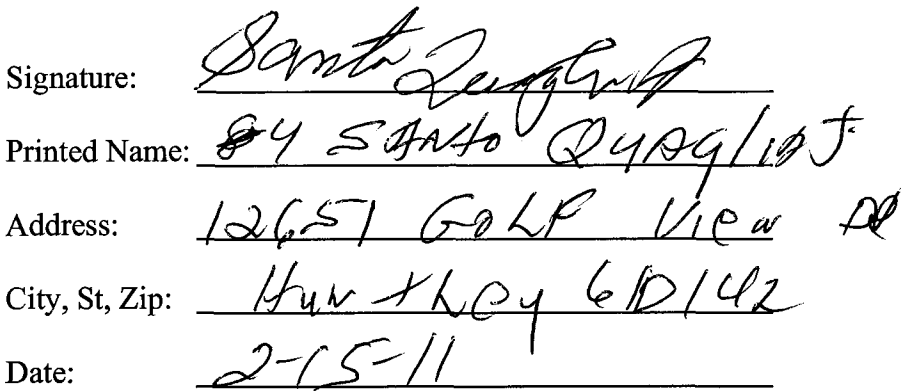 Signature: Santo
Printed Name: 84 SANTO
Address: 12651 GOLF View DR
City, St, Zip: Huntley 60142
Date: 2-15-11